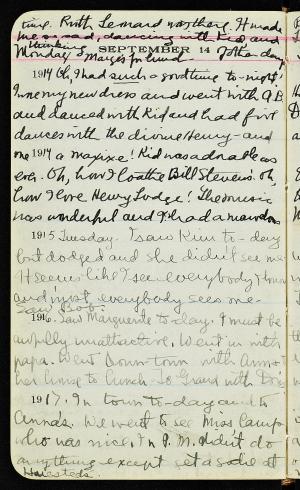 time. Ruth Lemard was there. H made
me so mad, dancing with Kid and
thinking
SEPTEMBER 14
Monday
1914 Oh, I had such a good time to-night!
In my new dress and went with A.B.
and danced with Kid and had five
dances with the divine Henry - and
one 1914 a maxixe! Kid was adorable as
ever. Oh, how I loathe Bill Stevens. Oh,
how I love Henry Lodge! The music
was wonderful and I had a
1915 Tuesday. I saw Kim to-day
but dodged and she didn't see me.
H seems like I see everybody I know
and most everybody sees me.
Saw Bob.
1916. Saw Marguerite to-day. I must be
awfully unattractive. Went in with
papa. Went down-town with Anna &
her to lunch. To Grand with
1917. In town to-day and to
Anna's. We went to see Miss Camp
who was nice. In P.M. didn't do
anything except get a soda at
Halsteds.